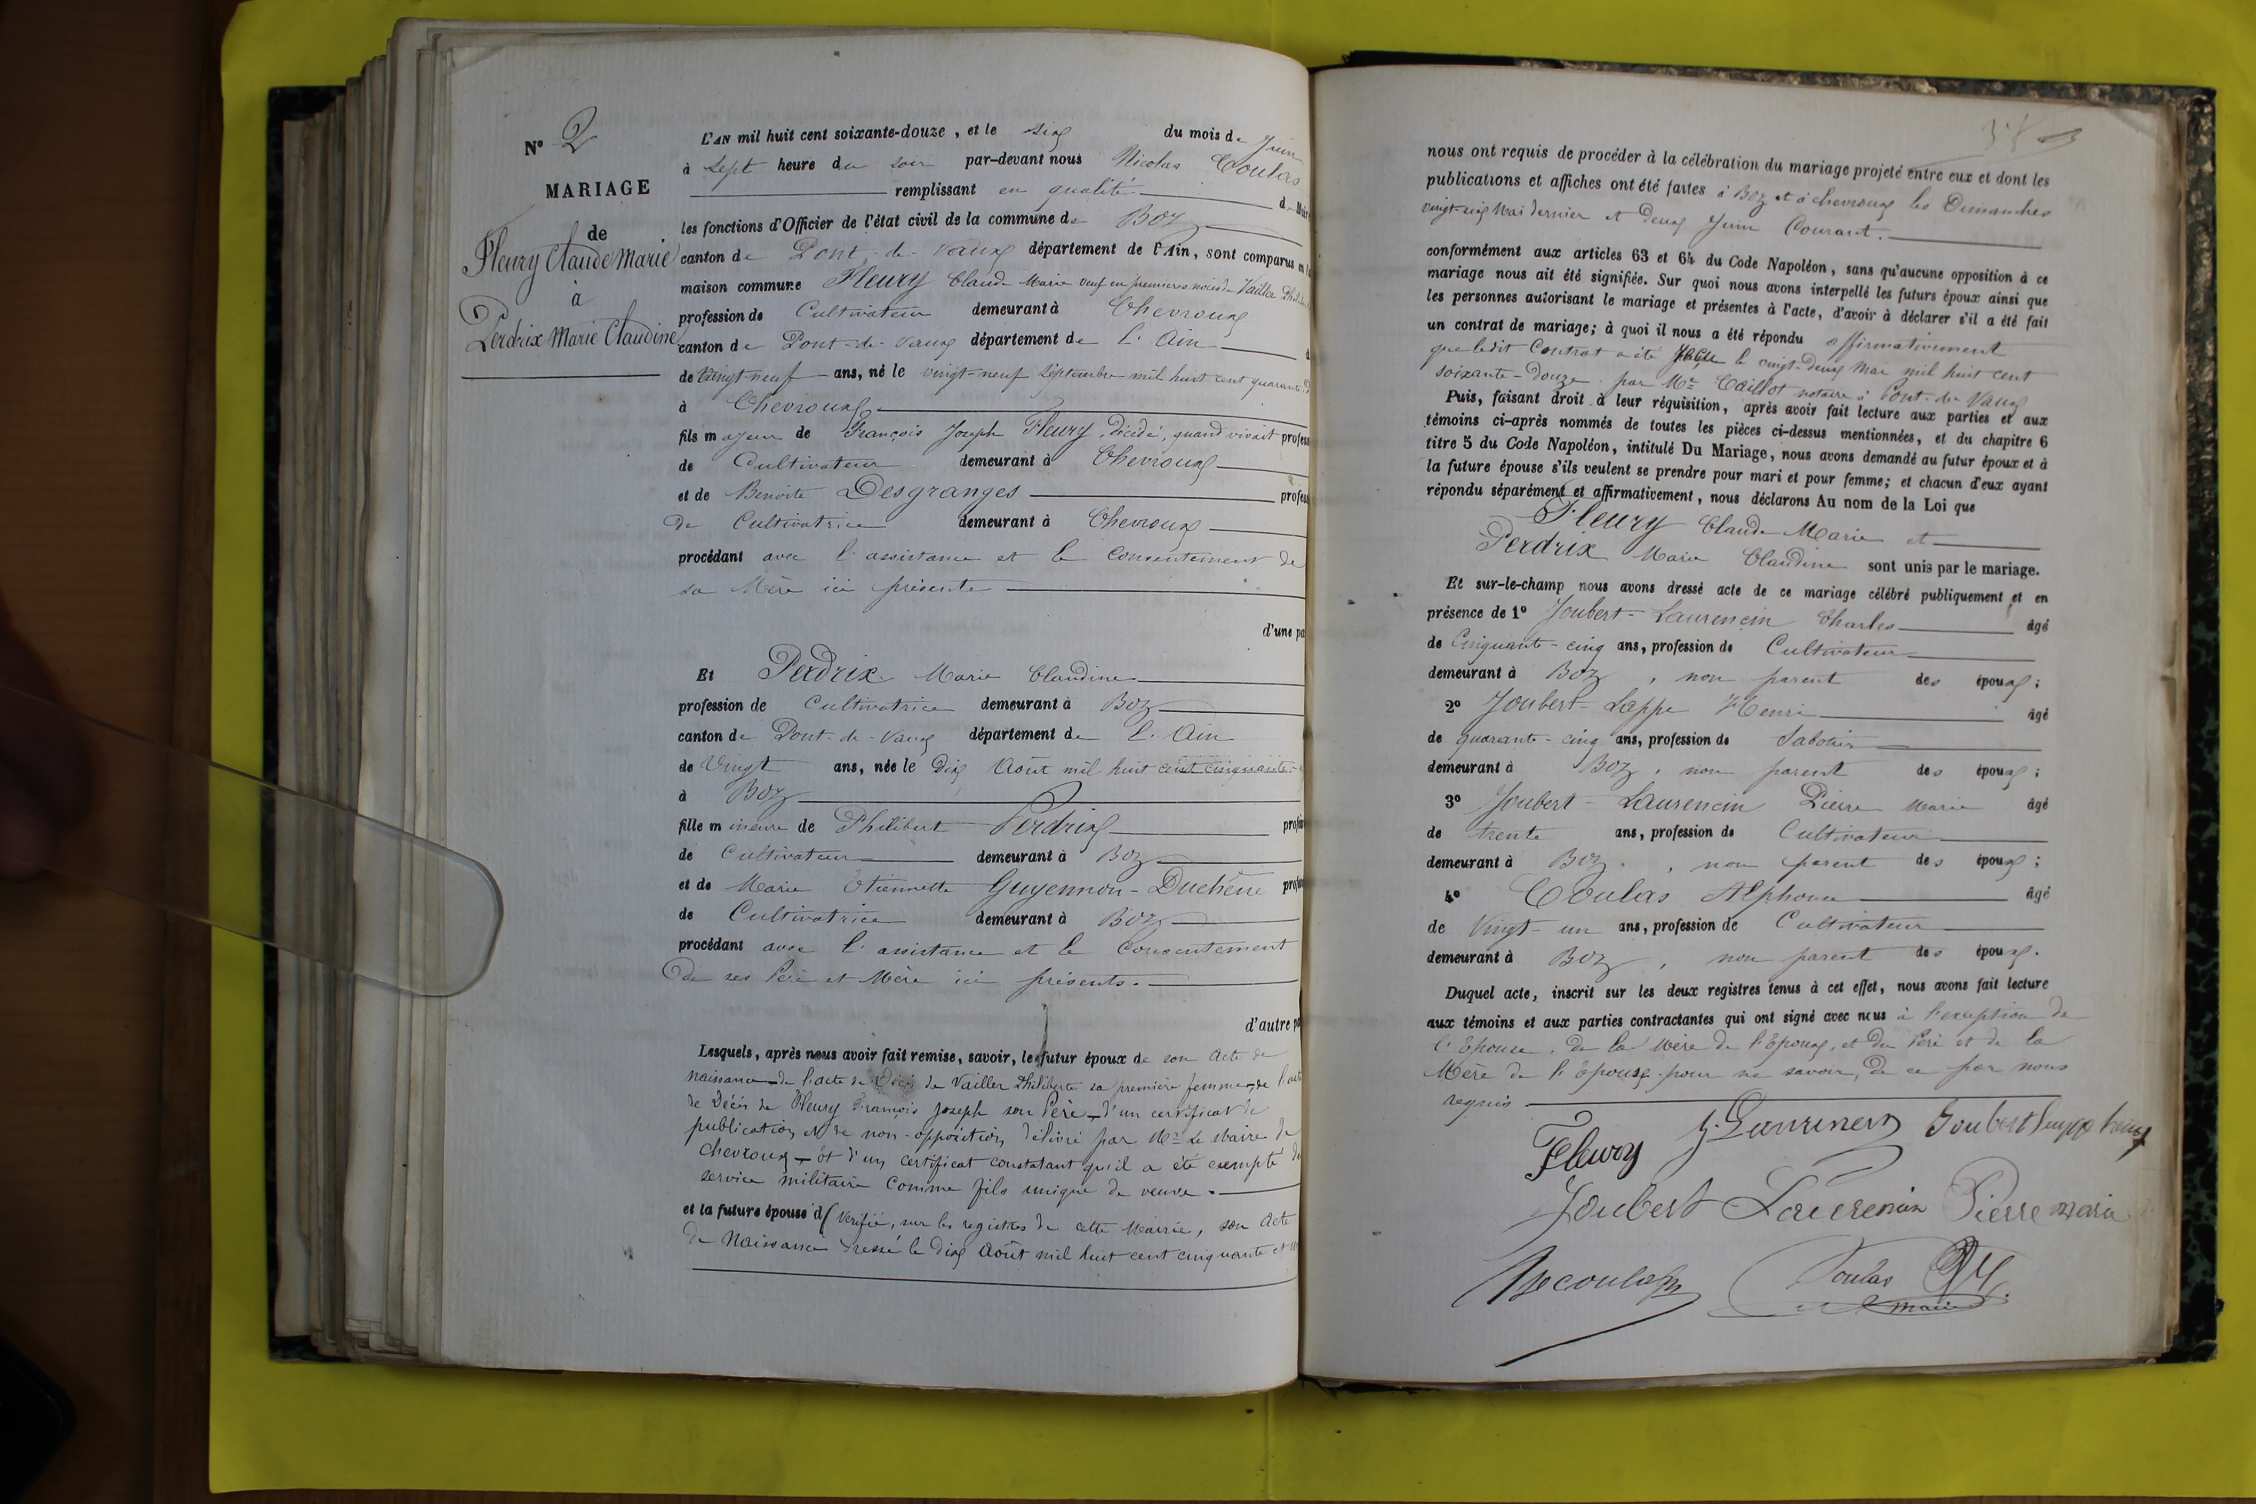 N° 2
MARIAGE
de
Fleury Claude Marie
à
Perdrix Marie Claudine
L'AN mil huit cent soixante-douze, et le six du mois de Juin
à sept heure du soir par-devant nous Nicolas Coulas
remplissant en qualité de Maire
les fonctions d'Officier de l'état civil de la commune de Boz
canton de Pont-de-Vaux département de l'Ain, sont comparus en la
maison commune Fleury Claude Marie veuf en premières noces de Vailler
profession de Cultivateur demeurant à Chevroux
canton de Pont-de-Vaux département de l'Ain
de vingt-neuf ans, né le vingt-neuf Septembre mil huit cent quarante
à Chevroux
fils majeur de François Joseph Fleury, décédé, quand vivait profess
de Cultivateur demeurant à Chevroux
et de Benoite Desgranges profess
de Cultivatrice demeurant à Chevroux
procédant avec l'assistance et le consentement de
sa Mère ici présente
d'une pa
Et Perdrix Marie Claudine
profession de Cultivatrice demeurant à Boz
canton de Pont-de-Vaux département de l'Ain
de Vingt ans, née le Dix Août mil huit cent cinquante-
à Boz
fille mineure de Philibert Perdrix profes
de Cultivateur demeurant à Boz
et de Marie Etiennette Guyennon-Duchêne profes
de Cultivatrice demeurant à Boz
procédant avec l'assistance et le consentement
De ses Père et Mère ici présents.
d'autre pa
Lesquels, après nous avoir fait remise, savoir, le futur époux de son Acte de
naissance - de l'acte de Décès de Vailler Philiberte sa première femme - de l'acte
de Décès de Fleury François Joseph son Père - d'un certificat de
publication et de non-opposition délivré par Mr le Maire de
Chevroux - et d'un certificat constatant qu'il a été exempté du
service militaire comme fils unique de veuve.
et la future épouse d( Vérifié, sur les registres de cette Mairie, son Acte
de Naissance dressé le Dix Août mil huit cent cinquante et un
nous ont requis de procéder à la célébration du mariage projeté entre eux et dont les
publications et affiches ont été faites à Boz et à Chevroux les Dimanches
vingt-six Mai dernier et deux Juin Courant.
conformément aux articles 63 et 64 du Code Napoléon, sans qu'aucune opposition à ce
mariage nous ait été signifiée. Sur quoi nous avons interpellé les futurs époux ainsi que
les personnes autorisant le mariage et présentes à l'acte, d'avoir à déclarer s'il a été fait
un contrat de mariage; à quoi il nous a été répondu affirmativement
que ledit Contrat a été reçu le vingt-deux Mai mil huit cent
soixante-Douze par Mr Caillot notaire à Pont-de-Vaux
Puis, faisant droit à leur réquisition, après avoir fait lecture aux parties et aux
témoins ci-après nommés de toutes les pièces ci-dessus mentionnées, et du chapitre 6
titre 5 du Code Napoléon, intitulé Du Mariage, nous avons demandé au futur époux et à
la future épouse s'ils veulent se prendre pour mari et pour femme; et chacun d'eux ayant
répondu séparément et affirmativement, nous déclarons Au nom de la Loi que
Fleury Claude Marie et
Perdrix Marie Claudine sont unis par le mariage.
Et sur-le-champ nous avons dressé acte de ce mariage célébré publiquement et en
présence de 1° Joubert-Laurencin Charles âgé
de Cinquante-cinq ans, profession de Cultivateur
demeurant à Boz, non parent des époux;
2° Joubert-Lappe Henri âgé
de quarante-cinq ans, profession de Sabotier
demeurant à Boz, non parent des époux;
3° Joubert-Laurencin Pierre Marie âgé
de trente ans, profession de Cultivateur
demeurant à Boz, non parent des époux;
4° Coulas Alphonse âgé
de Vingt-un ans, profession de Cultivateur
demeurant à Boz, non parent des époux.
Duquel acte, inscrit sur les deux registres tenus à cet effet, nous avons fait lecture
aux témoins et aux parties contractantes qui ont signé avec nous à l'exception de
l'Epouse, de la Mère de l'Epoux, et du Père et de la
Mère de l'Epouse pour ne savoir, de ce par nous
requis
Fleury
Joubert
Joubert Laurencin Pierre marie
Coulas
maire